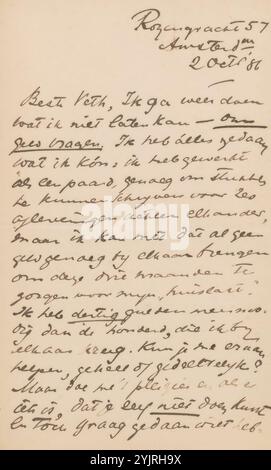 Rozengracht 57
Amsterdam
2 Octr '86
Beste Veth, Ik ga weer doen
wat ik niet laten kan — om
geld vragen. Ik heb álles gedaan
wat ik kón: ik heb gewerkt
als een paard, genoeg om stukken
te kunnen schrijven voor zes
afleveringen achter elkander,
maar ik kan niet dat al geen
geld genoeg bij elkaar brengen
om deze drie maanden te
zorgen voor mijn
Ik heb dertig gulden
bij dan de honderd, die ik bij
elkaar kreeg. Kun je me eraan
helpen, geheel of gedeeltelijk?
Maar doe me 't plezier en als
't is, dat je zeg niet doen kunt
en toch graag gedaan
alamy
Image ID: 2YJRH9X
www.alamy.com